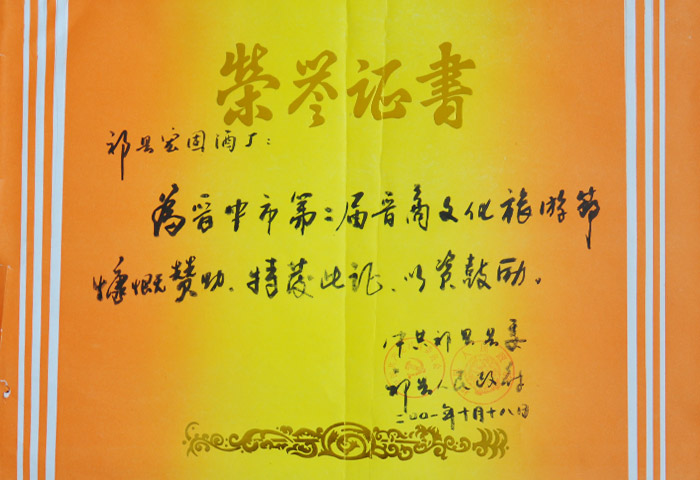 荣誉证书
祁县宏固酒厂:
为晋中市第二届晋商文化旅游节
慷慨赞助、特发此证、以资鼓励。
中共祁县县委
祁县人民政府
二00一年十月十八日